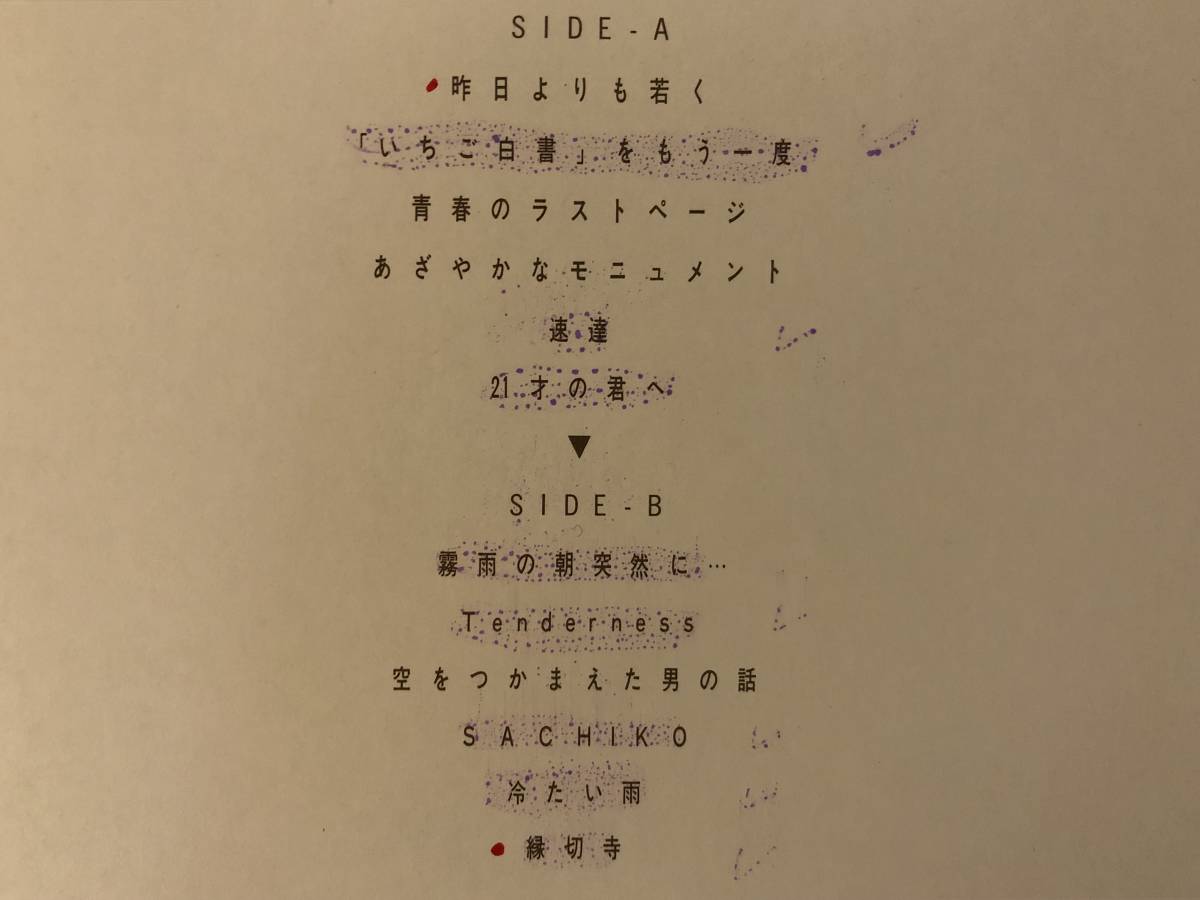 SIDE-A
昨日よりも若く
「いちご白書」をもう一度
青春のラストページ
あざやかなモニュメント
速達
21才の君へ
▼
SIDE-B
霧雨の朝突然に…
Tenderness
空をつかまえた男の話
SACHIKO
冷たい雨
縁切寺